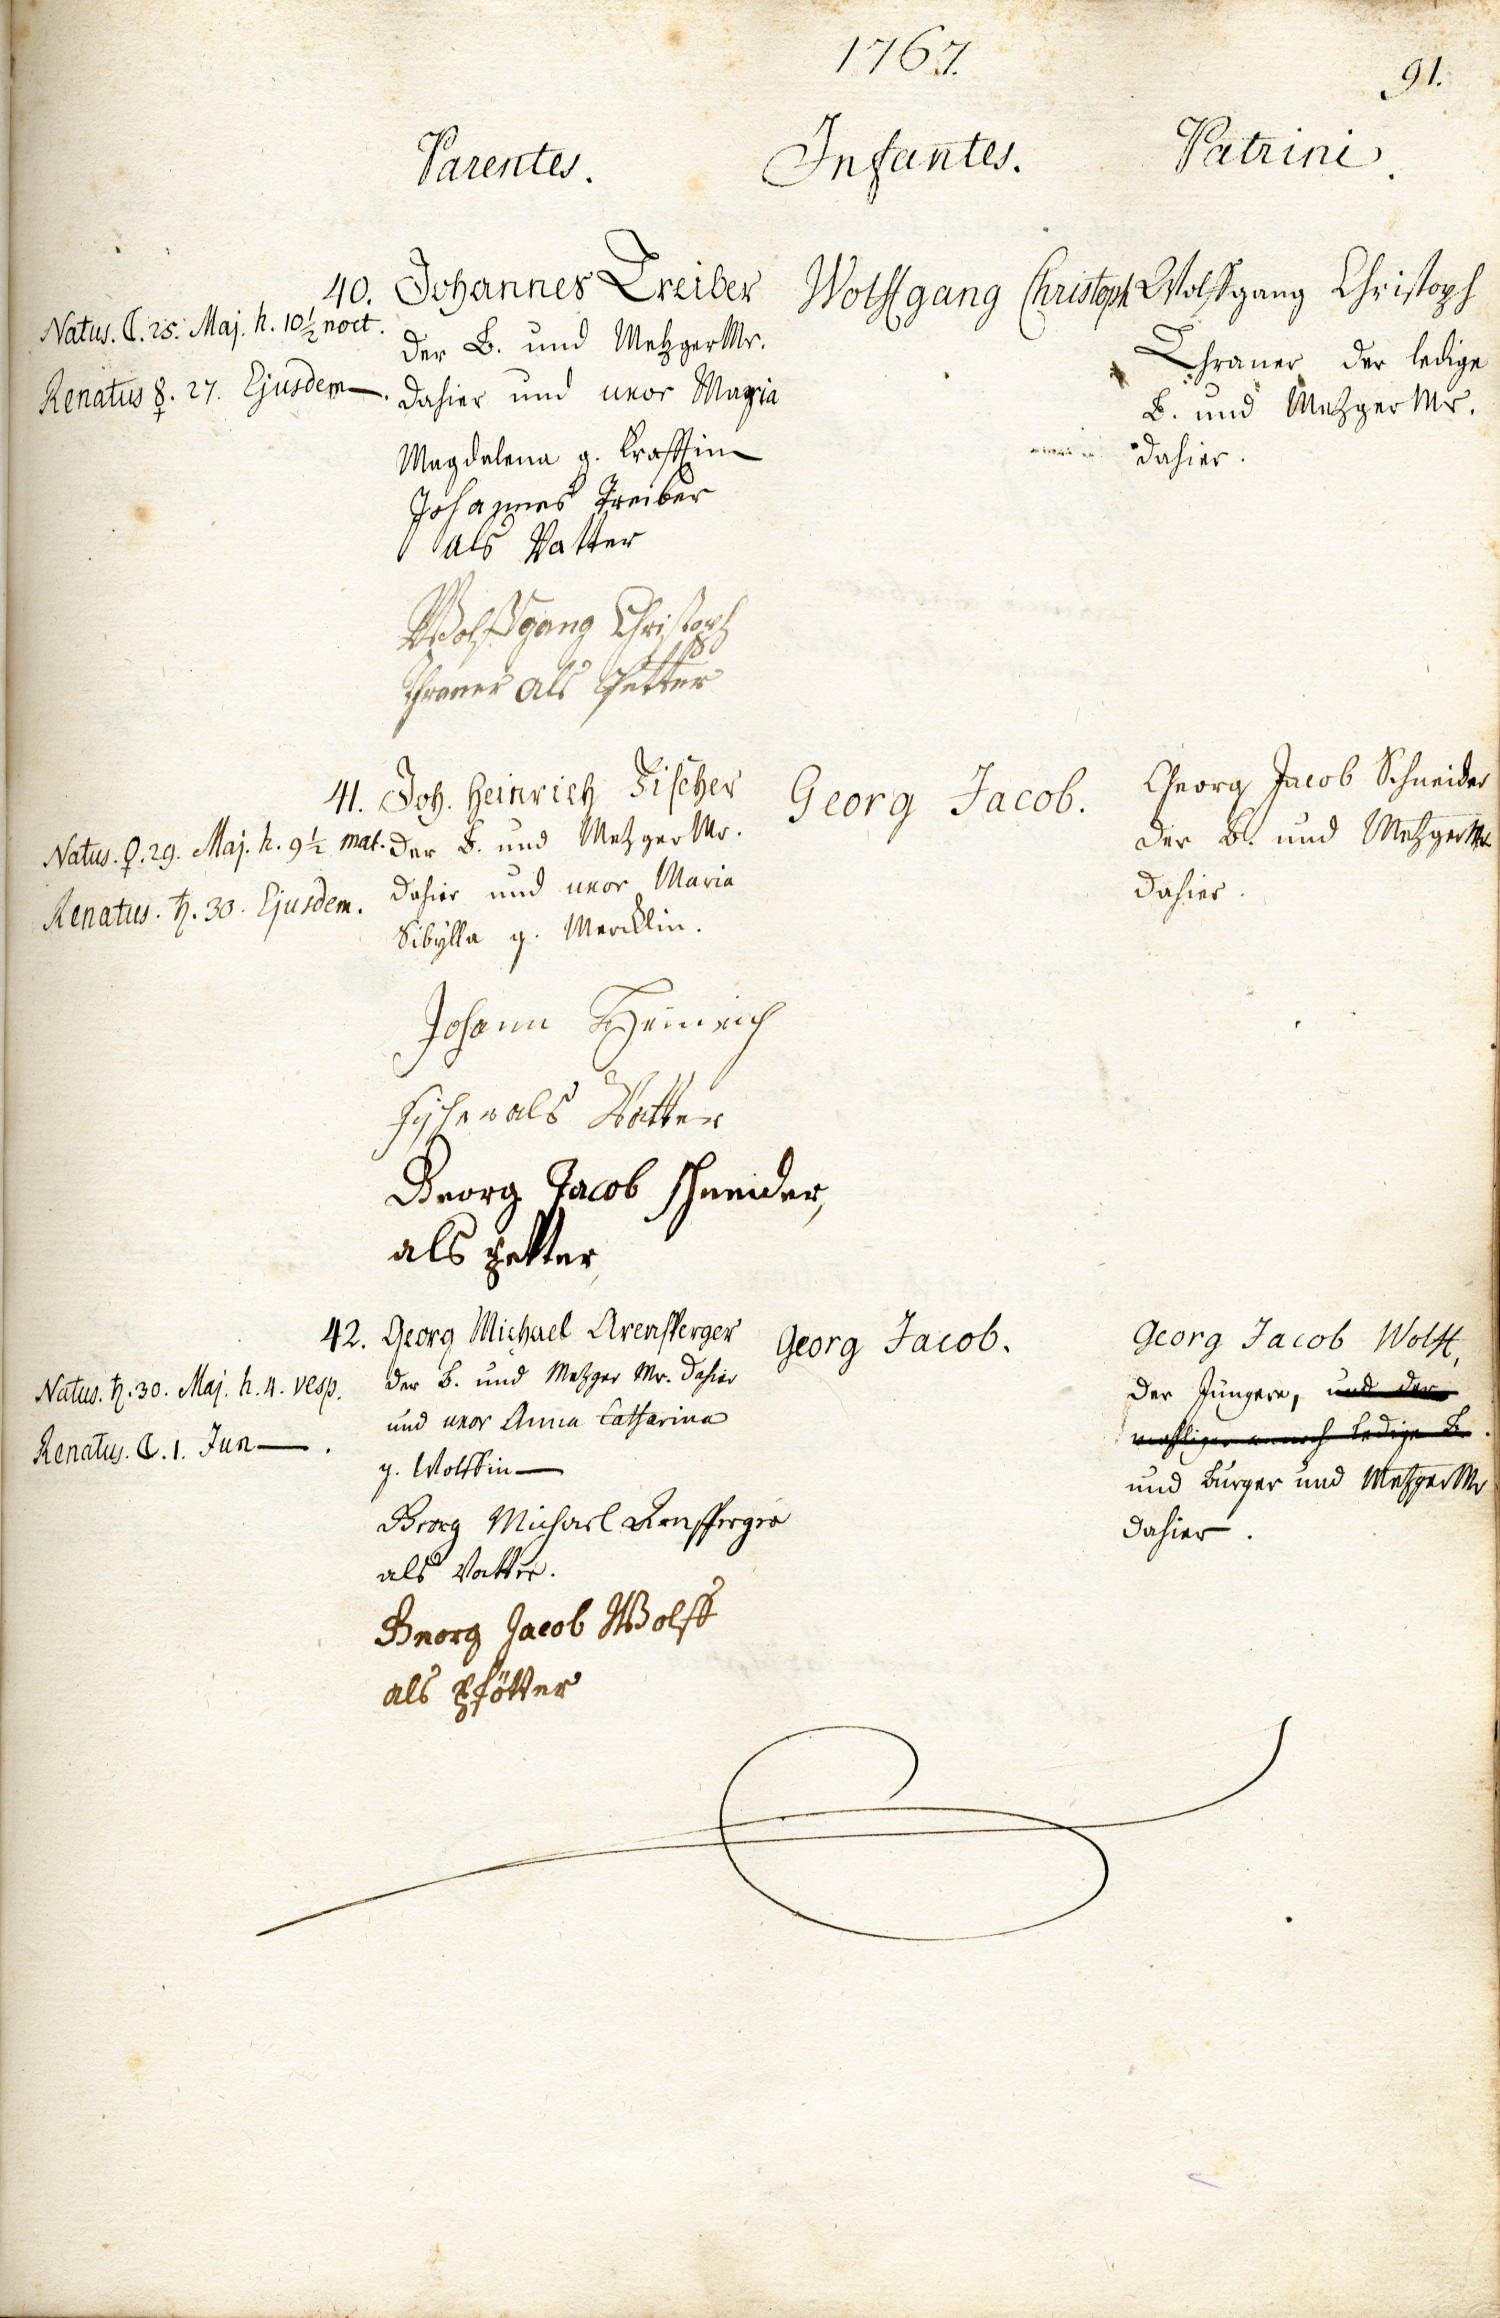 1767.
91.
Parentes.
Infantes.
Patrini.
40.
Natus. ☾. 25. Maj. h. 10½ noct.
Renatus ☿. 27. Ejusdem.
Johannes Treiber
der B. und Metzger Mr.
dahier und uxor Maria
Magdalena g. Krafftin
Johannes Treiber
als Vatter
Wolffgang Christoph
Thraner als Petter
Wolffgang Christoph
Wolffgang Christoph
Thraner der ledige
B. und Metzger Mr.
dahier.
41.
Natus. ♀. 29. Maj. h. 9½ mat.
Renatus. ♄. 30. Ejusdem.
Joh. Heinrich Fischer
der B. und Metzger Mr.
dahier und uxor Maria
Sibÿlla g. Mercklin.
Johann Heinrich
fischer als Vatter
Georg Jacob schneider,
als petter
Georg Jacob.
Georg Jacob Schneider
der B. und Metzger Mr.
dahier.
42.
Natus. ♄. 30. Maj. h. 4. vesp.
Renatus. ☾. 1. Jun.
Georg Michael Arensperger
der B. und Metzger Mr. dahier
und uxor Anna Catharina
g. Wolffin
Georg Michael Arnsperger
als Vatter.
Georg Jacob Wolff
als Pfötter
Georg Jacob.
Georg Jacob Wolff,
der Jüngere, und der
noch ledige B.
und Burger und Metzger Mr
dahier.